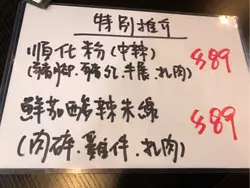 特別推介
順化粉(中辣) $89
(豬腳.豬仁.牛展.扎肉)
鮮茄酸辣朱線 $89
(肉碎.雞件.扎肉)